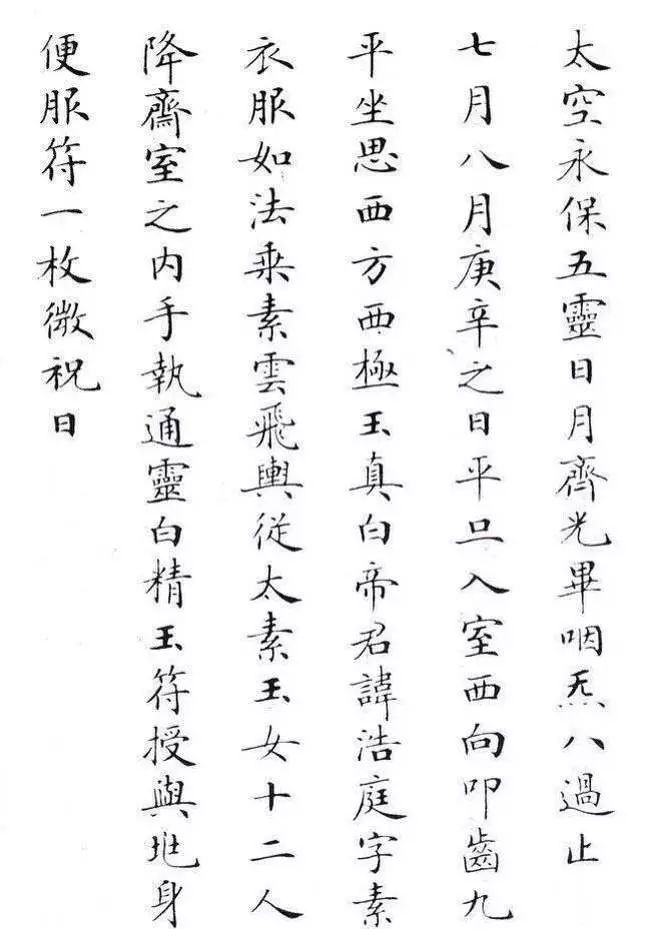 太空永保五靈日月齊光畢咽炁八過止
七月八月庚辛之日平旦入室西向叩齒九
平坐思西方西極玉真白帝君諱浩庭字素
衣服如法乘素雲飛輿從太素玉女十二人
降齋室之内手執通靈白精玉符授與兆身
便服符一枚微祝曰